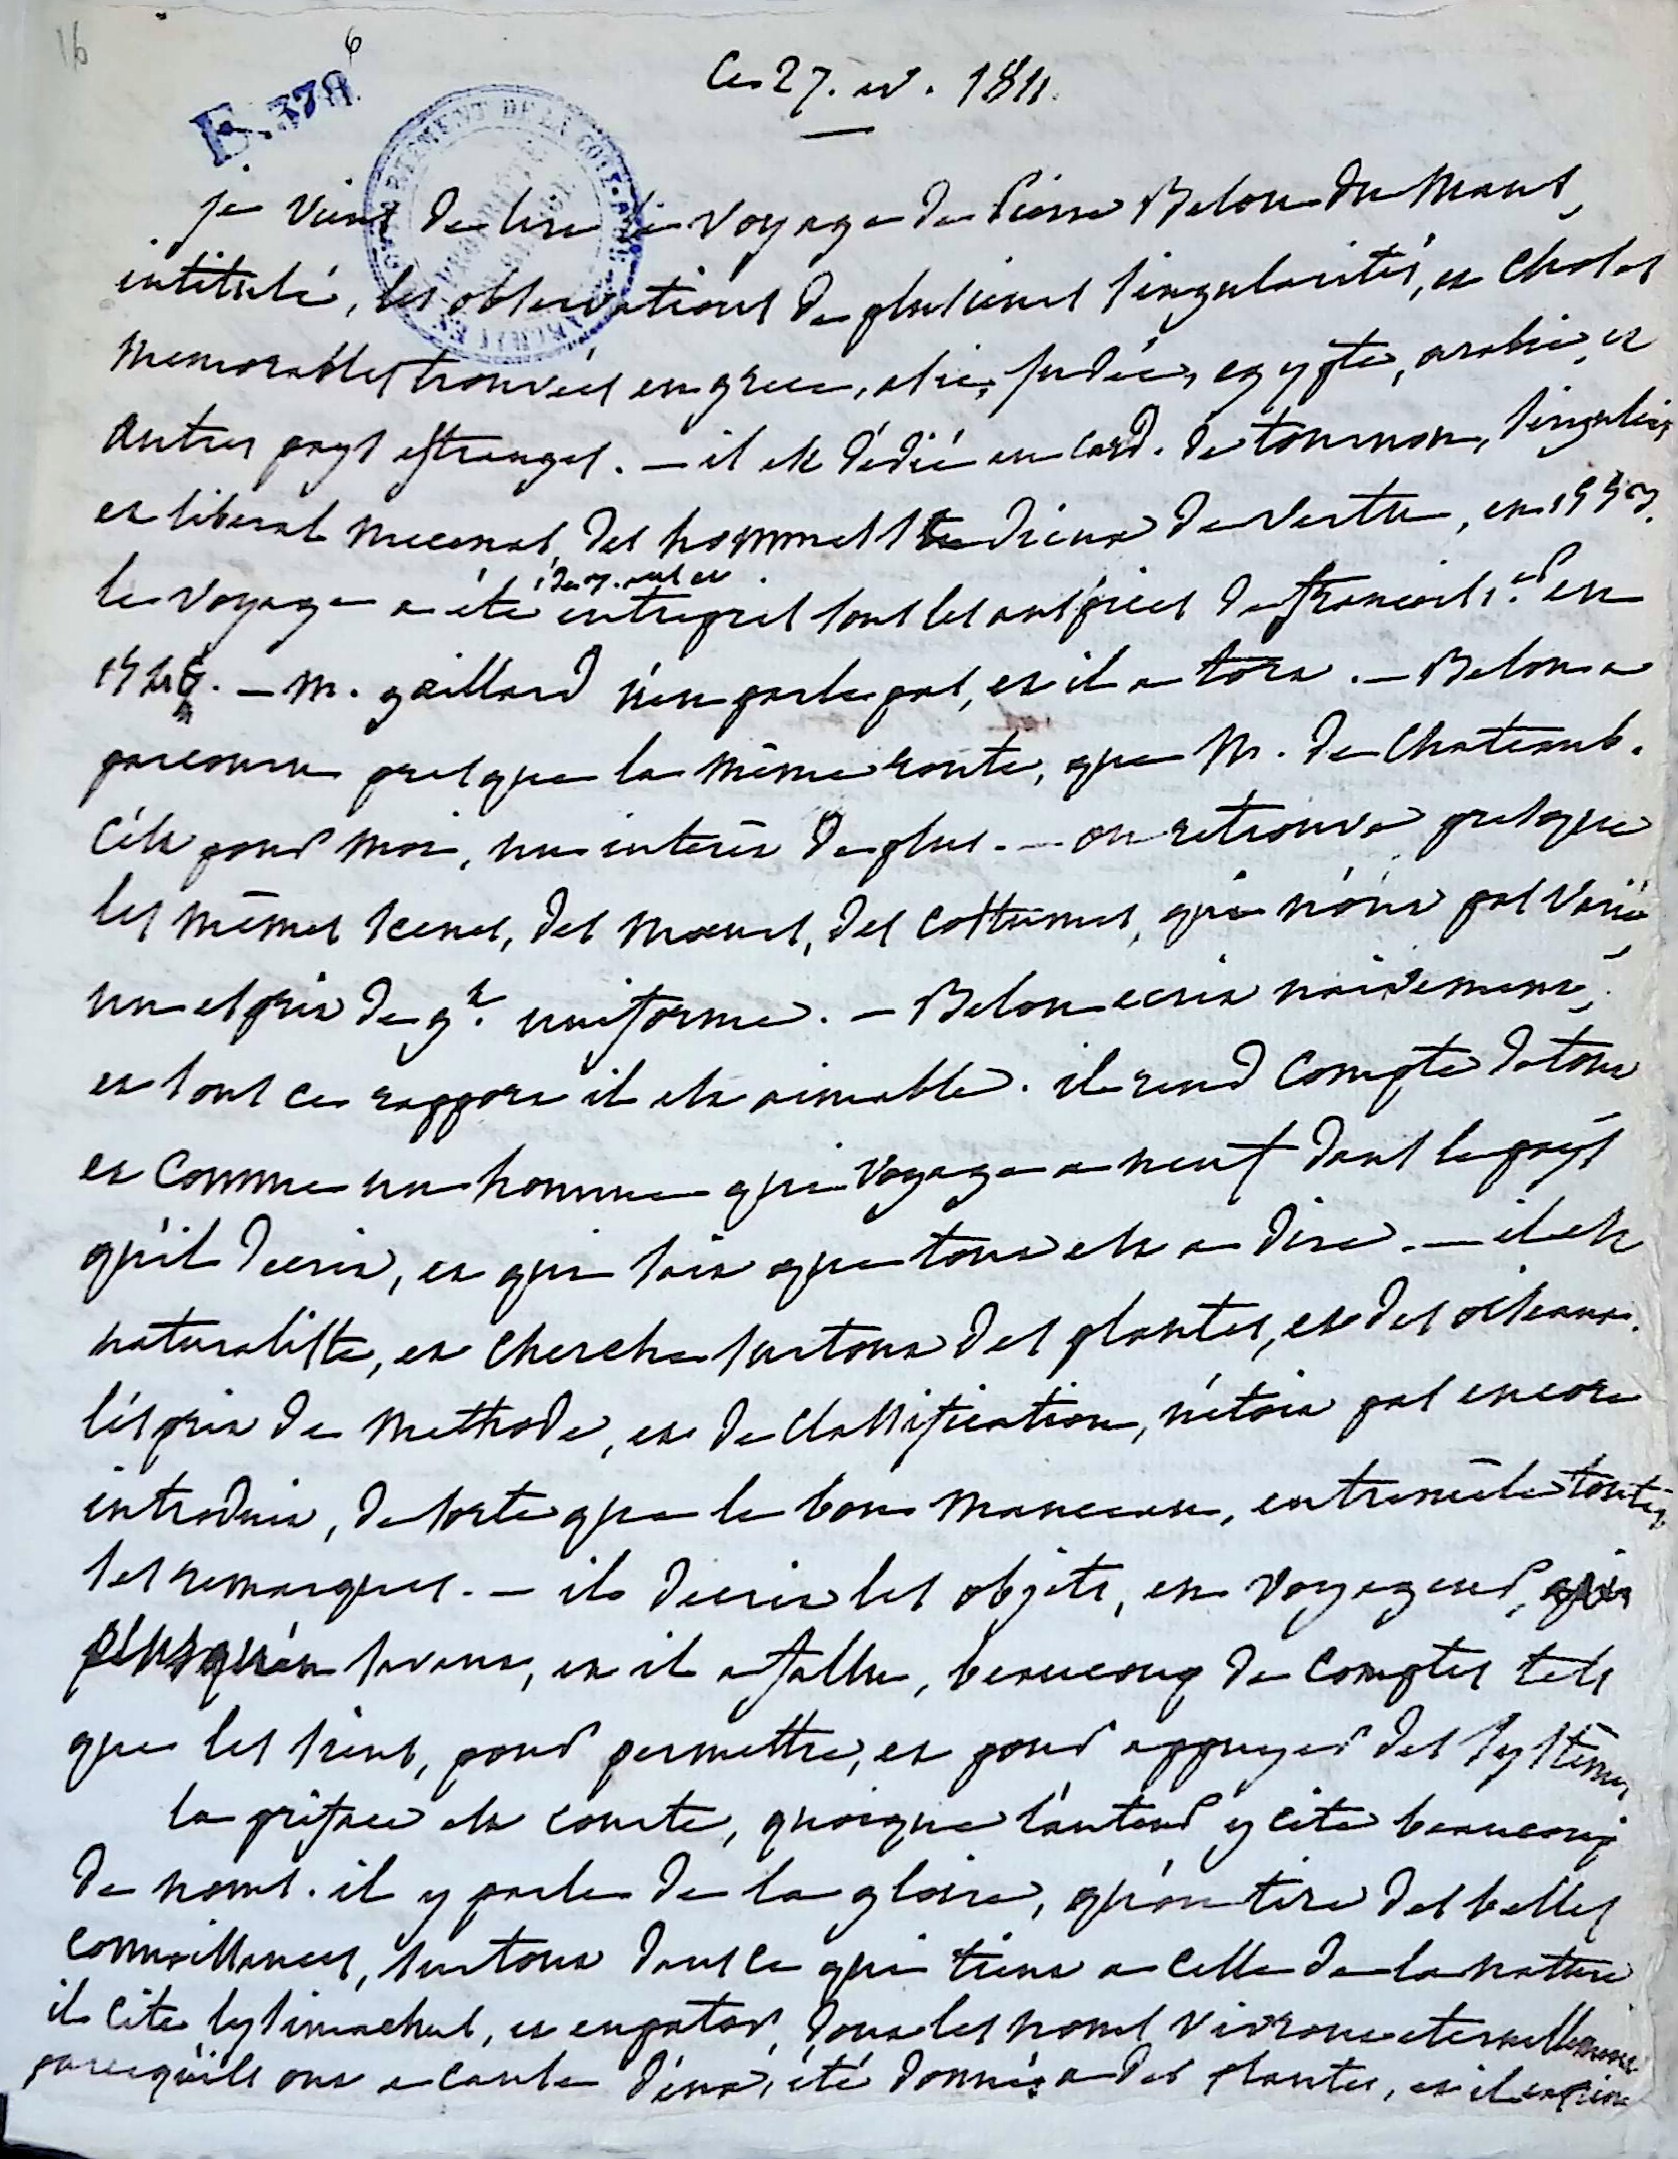 16
6
E. 378
Ce 27. av. 1811.
je viens de lire le voyage de Pierre Belon du Mans,
intitulé, les observations de plusieurs singularités, et choses
memorables trouvées en grece, asie, judée, egypte, arabie, et
autres pays estranges. — il est dédié au card. de tournon, singulier
et liberal mecenas, des hommes studieux de vertu, en 1553.
le voyage a été entrepris sous les auspices de françois 1.er en
154. — M. gaillard n'en parle pas, et il a tort. — Belon a
parcouru presque la même route, que M. de Chateaub.
c'est pour moi, un interêt de plus. — on retrouve presque
les mêmes scenes, des moeurs, des costumes, qui n'ont pas varié,
un esprit de gt. uniforme. — Belon ecrit naivement,
et sous ce rapport il est aimable. il rend compte de tout
et comme un homme qui voyage a neuf dans le pays
qu'il decrit, et qui sait que tout est a dire. — il est
naturaliste, et cherche surtout des plantes, et des oiseaux.
l'esprit de methode, et de classification, n'étoit pas encore
introduit, de sorte que le bon manceau, entremêle toutes
ses remarques. — il decrit les objets, en voyageur,
plus qu'en savant, et il a fallu, beaucoup de comptes tels
que les siens, pour permettre, et pour appuyer des systêmes
la préface est courte, quoique l'auteur y cite beaucoup
de noms. il y parle de la gloire, qu'on tire des belles
connoissances, surtout dans ce qui tient a celle de la nature
il cite lysimachus, et eupator, dont les noms vivront eternellement
parcequ'ils ont a cause d'eux, été donnés a des plantes, et il